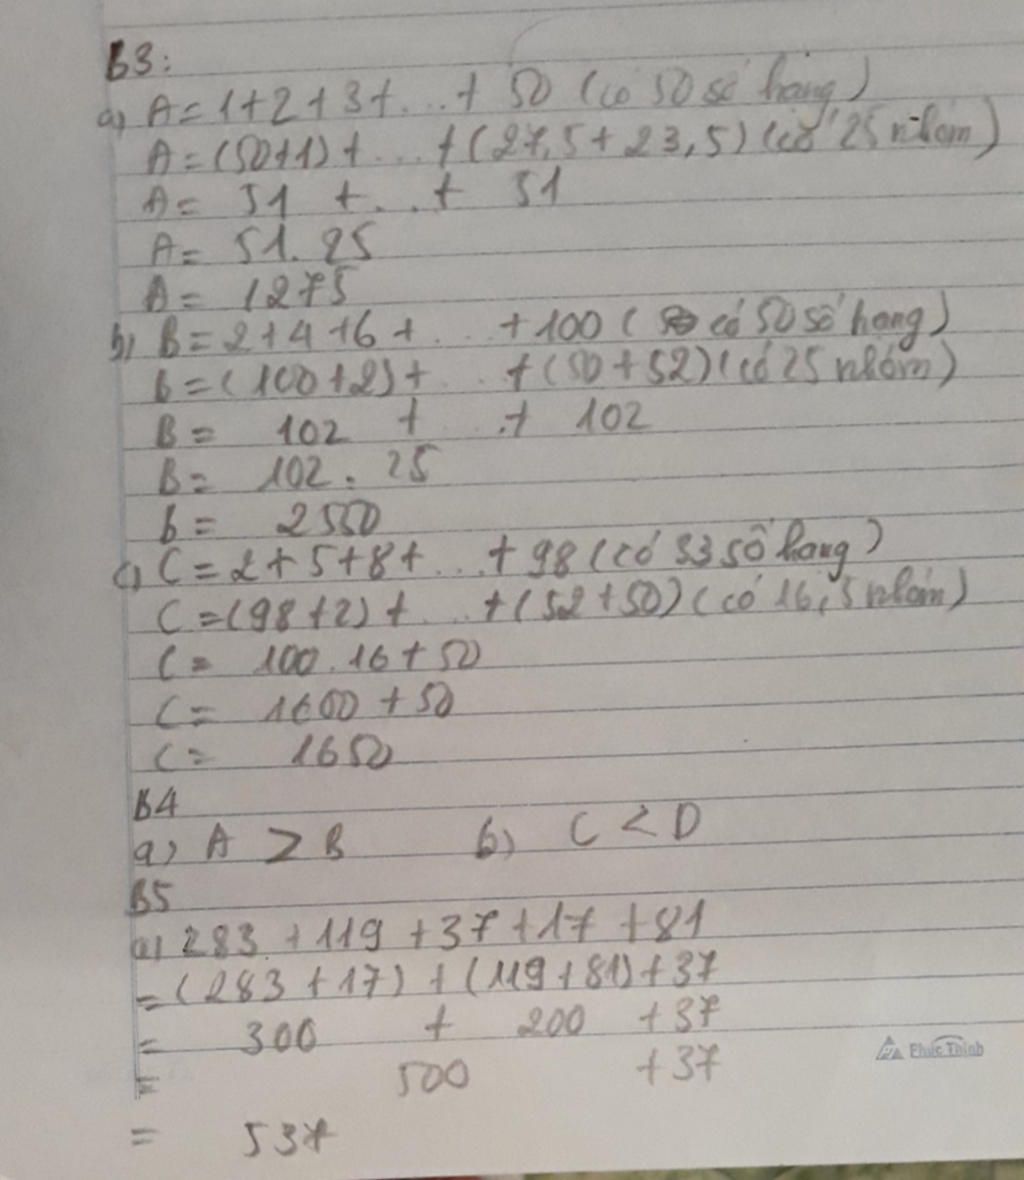 B3:
a) A = 1 + 2 + 3 + ... + 50 (có 50 số hạng)
A = (50+1) + ... + (27,5 + 23,5) (có 25 nhóm)
A = 51 + ... + 51
A = 51 . 25
A = 1275
b) B = 2 + 4 + 6 + ... + 100 (có 50 số hạng)
B = (100+2) + ... + (50 + 52) (có 25 nhóm)
B = 102 + ... + 102
B = 102 . 25
B = 2550
c) C = 2 + 5 + 8 + ... + 98 (có 33 số hạng)
C = (98 + 2) + ... + (52 + 50) (có 16,5 nhóm)
C = 100 . 16 + 50
C = 1600 + 50
C = 1650
B4
a) A > B b) C < D
B5
a) 283 + 119 + 37 + 17 + 81
= (283 + 17) + (119 + 81) + 37
= 300 + 200 + 37
= 500 + 37
= 537
Phúc Thịnh